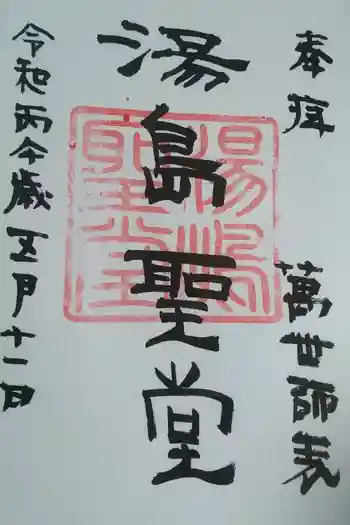 奉拜
萬世師表
湯島聖堂
湯島
聖堂
令和丙午歳五月十一日